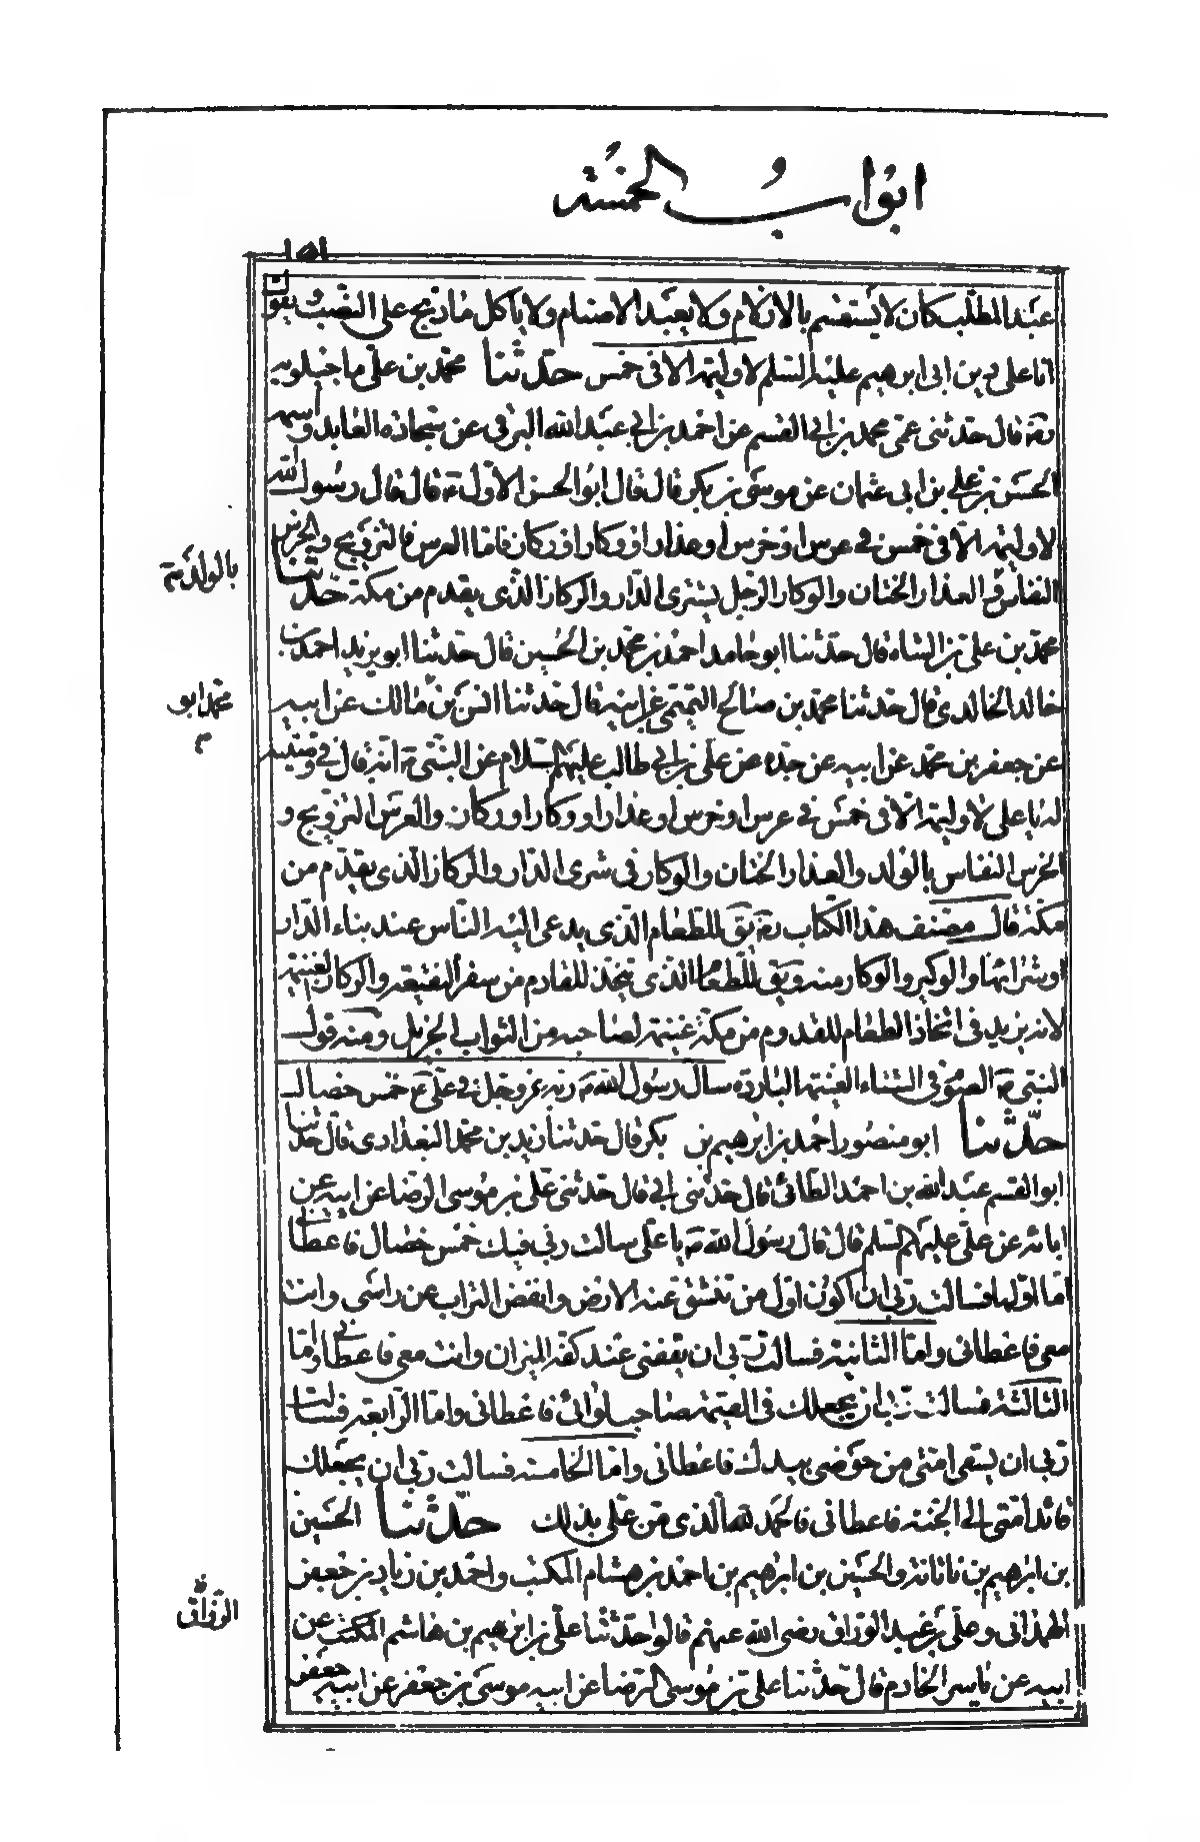 ابواب الخمسة
١٥١
عبد المطلب كان لا يستقسم بالازلام ولا يعبد الاصنام ولا ياكل ما ذبح على النصب يقو
انا على دين ابى ابرهيم عليه السلم لا وليمة الا فى خمس حدثنا محمد بن على ماجيلويه
رة قال حدثنى عمى محمد بن ابى القسم عن احمد بن ابى عبد الله البرقى عن سجاده العابد واسمه
الحسن بن على بن ابى عثمان عن موسى بن بكر قال قال ابو الحسن الاول ع قال قال رسول الله
لا وليمة الا فى خمس فى عرس او خرس او عذار او وكار او ركاز فاما العرس فالتزويج والخرس
النفاس و العذار الختان والوكار الرجل يشترى الدار والركاز الذى يقدم من مكة حدثنا
محمد بن على بن الشاه قال حدثنا ابو حامد احمد بن محمد بن الحسين قال حدثنا ابو يزيد احمد بن
خالد الخالدى قال حدثنا محمد بن صالح التميمى عن ابيه قال حدثنا انس بن مالك عن ابيه
عن جعفر بن محمد عن ابيه عن جده عن على بن ابى طالب عليهم السلام عن النبى ص انه قال فى وصيته
له يا على لا وليمة الا فى خمس فى عرس او خرس او عذار او وكار او ركاز والعرس التزويج و
الخرس النفاس بالولد والعذار الختان والوكار فى شرى الدار والركاز الذى يقدم من
مكة قال مصنف هذا الكتاب رة يق للطعام الذى يدعى اليه الناس عند بناء الدار
او شرائها الوكيرة والوكار منه ويق للطعام الذى يتخذ للقادم من سفر النقيعة والركاز الغنيمة
لانه يريد فى اتخاذ الطعام للقدوم من مكة غنيمة لصاحبه من الثواب الجزيل ومنه قول
النبى ص الصوم فى الشتاء الغنيمة الباردة سال رسول الله ص ربه عز وجل فى على ع خمس خصال
حدثنا ابو منصور احمد بن ابرهيم بن بكر قال حدثنا زيد بن محمد البغدادى قال حدثنا
ابو القسم عبد الله بن احمد الطائى قال حدثنى ابى قال حدثنى على بن موسى الرضا عن ابيه عن
ابائه عن على عليهم السلم قال قال رسول الله ص يا على سالت ربى فيك خمس خصال فاعطانى
اما اولها فسالت ربى ان اكون اول من تنشق عنه الارض وانفض التراب عن راسى وانت
معى فاعطانى واما الثانية فسالت ربى ان يقفنى عند كفة الميزان وانت معى فاعطانى واما
الثالثة فسالت ربى ان يجعلك فى القيمة صاحب لوائى فاعطانى واما الرابعة فسالت
ربى ان يسقى امتى من حوضى بيدك فاعطانى واما الخامسة فسالت ربى ان يجعلك
قائد امتى الى الجنة فاعطانى فالحمد لله الذى من على بذلك حدثنا الحسين
بن ابرهيم بن ناتانة والحسين بن ابرهيم بن احمد بن هشام المكتب واحمد بن زياد بن جعفر
الهمدانى وعلى بن عبد الوراق رضى الله عنهم قالوا حدثنا على بن ابرهيم بن هاشم المكتب عن
ابيه عن ياسر الخادم قال حدثنا على بن موسى الرضا عن ابيه موسى بن جعفر عن ابيه جعفر
بالولد ثم
محمد ابو
الوراق